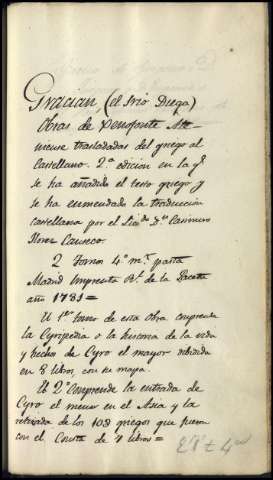 Gracian, (el Srio Diego)
Obras de Xenofonte Ate-
niense trasladadas del griego al
Castellano. 2ª edicion en la qe.
se ha añadido el testo griego y
se ha enmendado la traduccion
castellana por el Licdo. Dn. Casimiro
Florez Canseco.
2 Tomos 4º m.ª pasta
Madrid Imprenta Rl. de la Gaceta
año 1781=
El 1er tomo de esta obra comprende
la Cyripedia o la historia de la vida
y hechos de Cyro el mayor dividida
en 8 libros, con su mapa.
El 2º comprende la entrada de
Cyro el menor en el Asia y la
retirada de los 10$ griegos que fueron
con el en 7 libros=